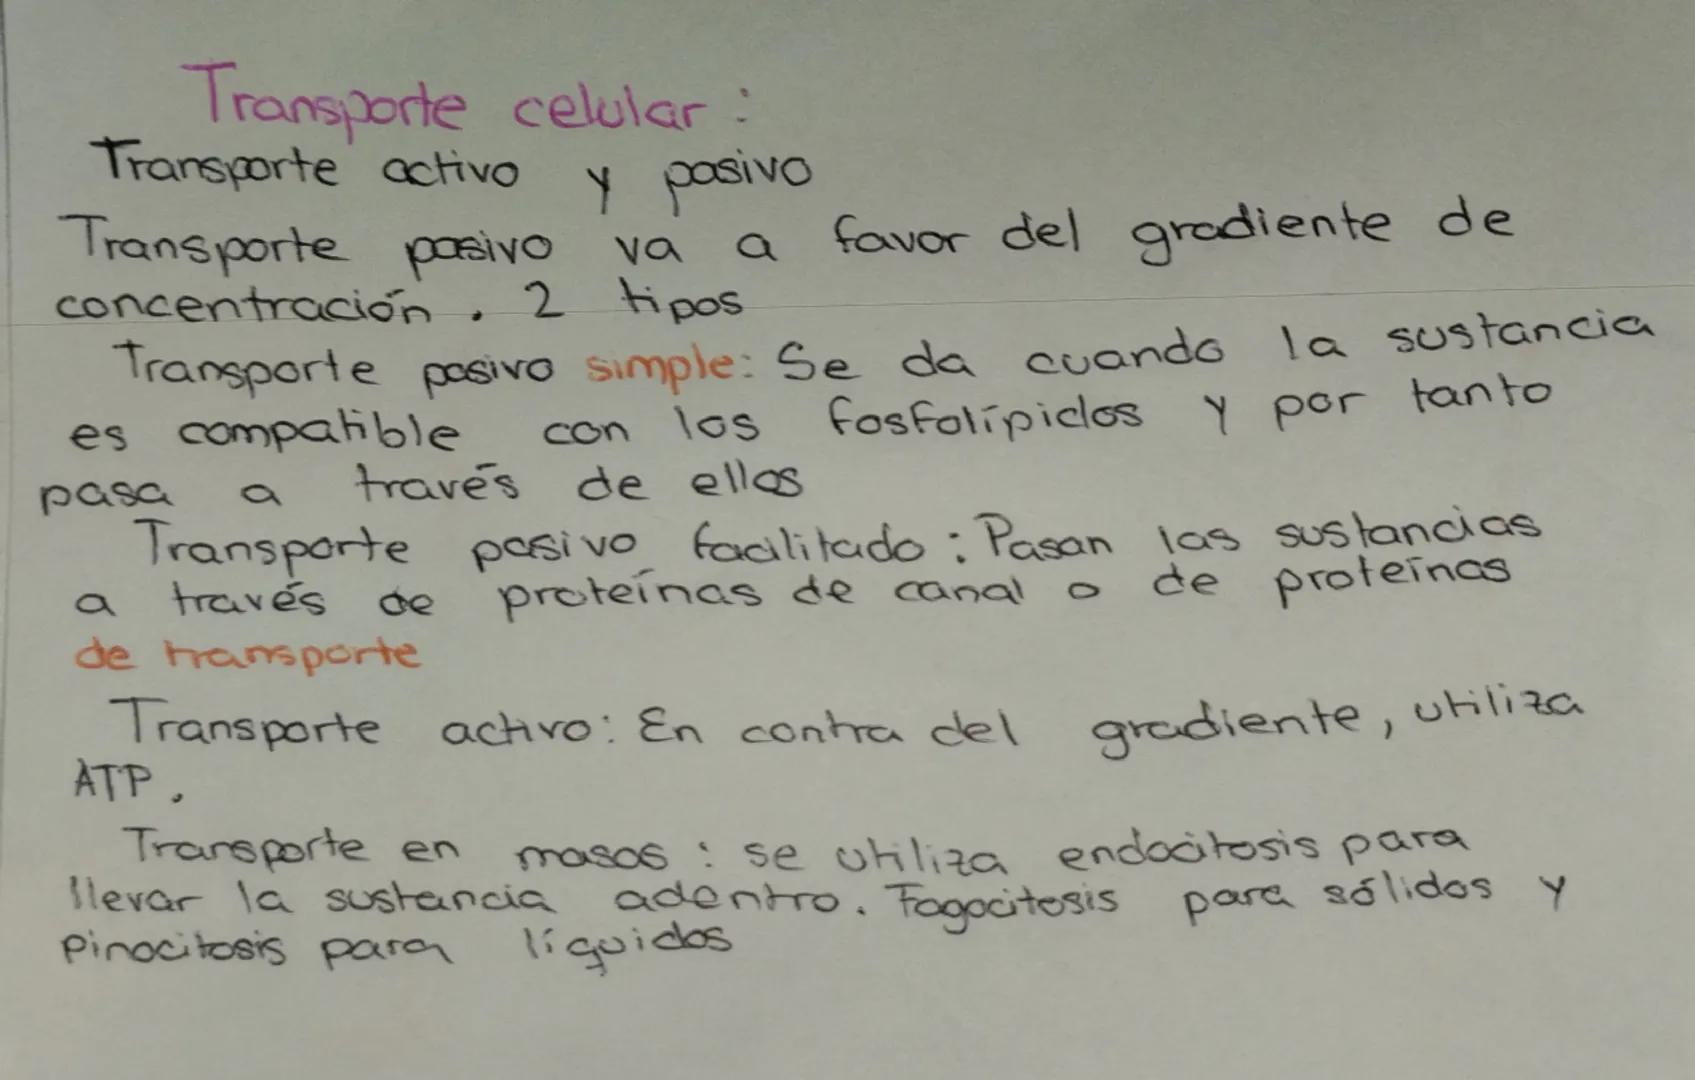 Transporte celular:
Transporte activo y pasivo
Transporte pasivo va a favor del gradiente de
concentración. 2 tipos
Transporte pasivo simple: Se da cuando la sustancia
es compatible con los fosfolípidos y por tanto
pasa a través de ellos
Transporte pasivo facilitado: Pasan las sustancias
a través de proteínas de canal o de proteínas
de transporte
Transporte activo: En contra del gradiente, utiliza
ATP.
Transporte en masas: se utiliza endocitosis para
llevar la sustancia adentro. Fagocitosis para sólidos y
Pinocitosis para líquidos